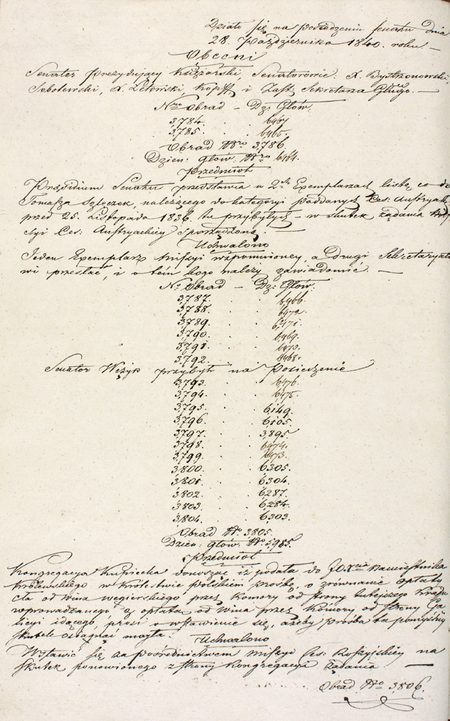 Działo się na Posiedzeniu Senatu Dnia
28. Października 1840. roku
Obecni
Senator Prezydujący Senatorowie X. Bystrzonowski
Sobolewski, X. Kopff i Zast. Sekretarza Głłgo.
Nra Obrad – Dz: Głów.
3,784.
3,785. 6465.
Obrad Nro 3,786.
Dzien. głów. Nro 6464.
Przedmiot
Prezydium Senatu przedstawia w 2ch Exemplarzach listę co do
Tomasza należącego do kategoryi poddanych Ces: Austryack:
przed 25. Listopada 1836. tu przybyłych – w skutek żądania
Ces: Austryackiej sporządzoną.
Uchwalono
Jeden Exemplarz missyi wspomnionej, a drugi Sekretarzo
wi przesłać, i o tém kogo należy zawiadomić. —
Nra Obrad – Dz: Głów.
3787. 6466.
3788.
3789. 6471.
3790. 6469.
3791.
3792. 6468.
Senator Wężyk przybył na Posiedzenie
3793. 6476.
3794. 6475.
3795. 6149.
3796. 6105.
3797. 3895
3798. 6474.
3799. 6473.
3800. 6305.
3801. 6304.
3802. 6287.
3803. 6284.
3804. 6303.
Obrad Nr. 3805.
Dzien. głów. Nr. 5985.
Przedmiot
Kongregacya Kupiecka donosząc iż podała do JO. Namiestnika
Królewskiego w Królestwie Polskiem prośbę, o zrównanie opłaty
cła od wina węgierskiego przez Komory od strony tutejszego Kraju
wprowadzanego z opłatą od wina przez Komory od strony Ga-
licyi idącego, prosi o wstawienie się, ażeby prośba ta pomyślny
skutek osiągnąć mogła.
Uchwalono
Wstawić się za pośrednictwem missyi Ces. Rossyjskiej na
skutek ponowionego z strony Kongregacyi żądania. —
Obrad Nro 3806.